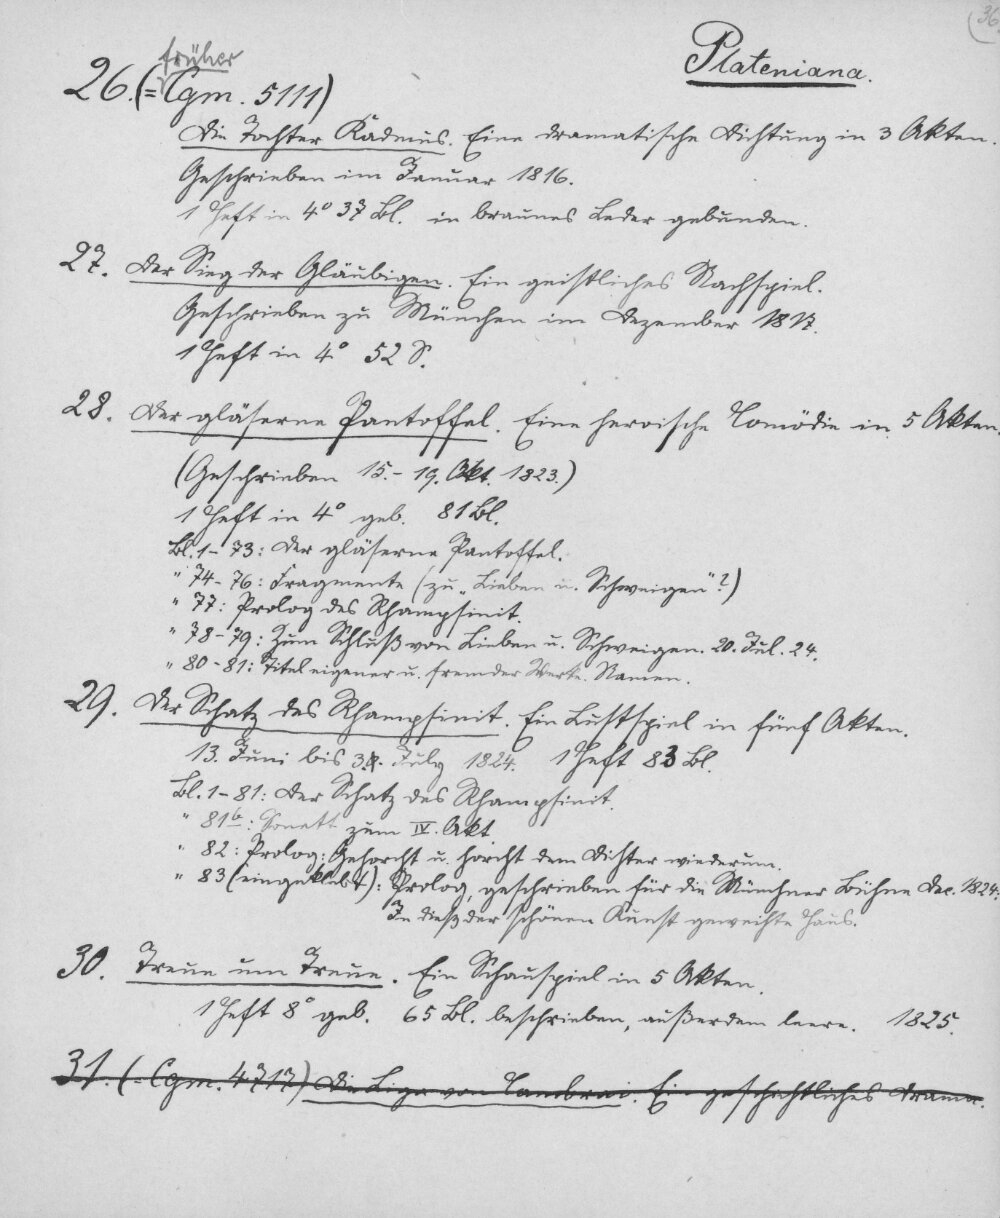 (36.
Plateniana.
früher
26. (= Cgm. 5111)
Die Tochter Kadmus. Eine dramatische Dichtung in 3 Akten.
Geschrieben im Januar 1816.
1 Heft in 4° 37 Bl. in braunes Leder gebunden.
27. Der Sieg der Gläubigen. Ein geistliches Nachspiel.
Geschrieben zu München im Dezember 1817.
1 Heft in 4° 52 S.
28. Der gläserne Pantoffel. Eine heroische Comödie in 5 Akten.
(Geschrieben 15.-19. Okt. 1823.)
1 Heft in 4° geb. 81 Bl.
Bl. 1-73: Der gläserne Pantoffel.
" 74-76: Fragmente (zu „Lieben u. Schweigen"?)
" 77: Prolog des Rhampsinit.
" 78-79: Zum Schluß von Lieben u. Schweigen. 20. Jul. 24.
" 80-81: Titel eigener u. fremder Werke. Namen.
29. Der Schatz des Rhampsinit. Ein Lustspiel in fünf Akten.
13. Juni bis July 1824. 1 Heft 83 Bl.
Bl. 1-81: Der Schatz des Rhampsinit.
" 81b: Sonett zum IV. Akt
" 82: Prolog: Gehorcht u. horcht dem Dichter wiederum.
" 83 (eingeklebt): Prolog, geschrieben für die Münchner Bühne Dec. 1824.
In dieß der schönen Kunst geweihte Haus.
30. Treue um Treue. Ein Schauspiel in 5 Akten.
1 Heft 8° geb. 65 Bl. beschrieben, außerdem leere. 1825.
31. (= Cgm. 4717) Die Liga von Cambrai. Ein geschichtliches Drama.